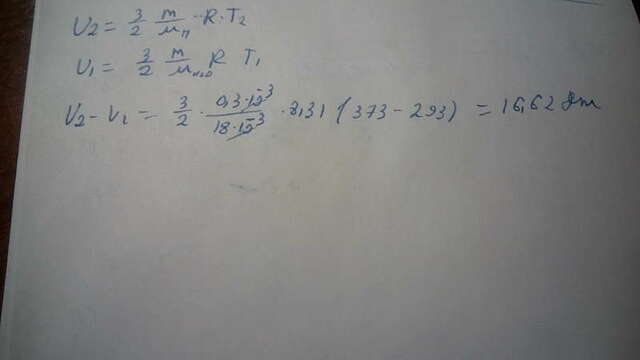 U₂ = 3/2 m/μₙ · R · T₂
U₁ = 3/2 m/μ R T₁
U₂ - U₁ = 3/2 · 0,3·10⁻³/18·10⁻³ · 8,31 (373 - 293) = 16,62 Дж